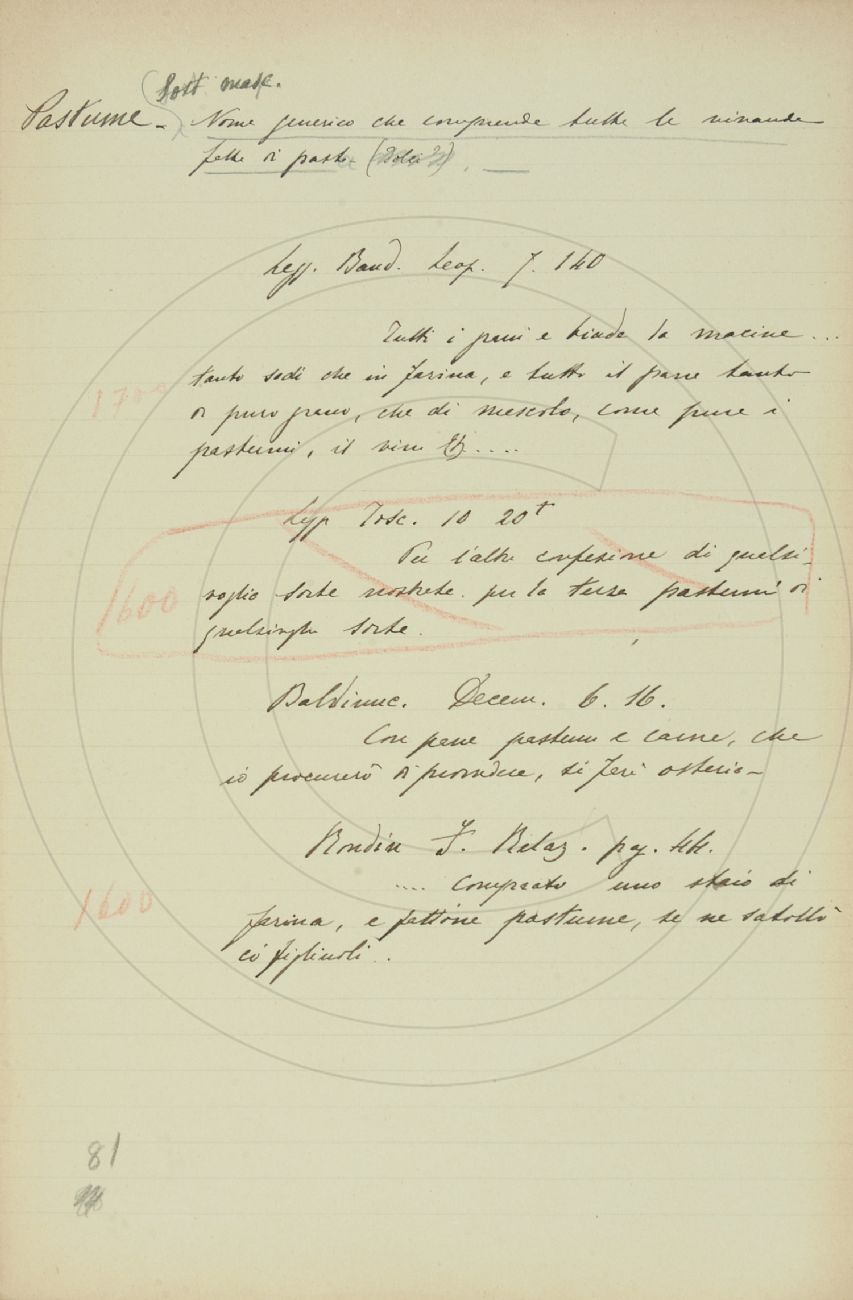 Sost. masc.
Pastume - Nome generico che comprende tutte le vivande
fatte di pasta (Dolci?)
Legg. Band. Leop. 7. 140
Tutti i grani e biade la macine ...
tanto sodi che in farina, e tutto il pane tanto
di puro grano, che di mescolo, come pure i
1700
pastumi, il vin
Legg. Tosc. 10 20
Per l'altre confezione di qualsi-
1600
voglia sorte nostrate. per la terza pastumi di
qualsivoglia sorte.
Baldinuc. Decenn. 6. 16.
Con pane pastumi e carne, che
io procurerò di provvedere, si farà osteria-
Rondin F. Relaz. pag. 44.
.... comprato uno staio di
1600
farina, e fattone pastume, se ne satollò
co' figliuoli.
81